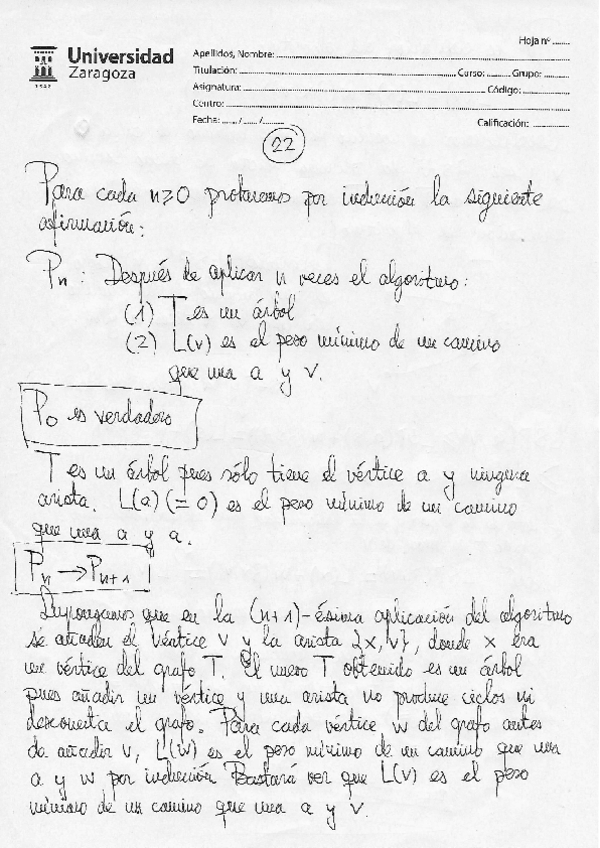 Hoja nº
Universidad
Zaragoza
1542
Apellidos, Nombre:
Titulación: Curso: Grupo:
Asignatura: Código:
Centro:
Fecha: / / Calificación:
22
Para cada n≥0 probaremos por inducción la siguiente
afirmación:
Pn : Después de aplicar n veces el algoritmo:
(1) T es un árbol
(2) L(v) es el peso mínimo de un camino
que una a y v.
P0 es verdadero
T es un árbol pues sólo tiene el vértice a y ninguna
arista. L(a) (=0) es el peso mínimo de un camino
que una a y a.
Pn → Pn+1
Supongamos que en la (n+1)-ésima aplicación del algoritmo
se añaden el vértice v y la arista {x,v}, donde x era
un vértice del grafo T. El nuevo T obtenido es un árbol
pues añadir un vértice y una arista no produce ciclos ni
desconecta el grafo. Para cada vértice w del grafo antes
de añadir v, L(w) es el peso mínimo de un camino que una
a y w por inducción. Bastará ver que L(v) es el peso
mínimo de un camino que una a y v.